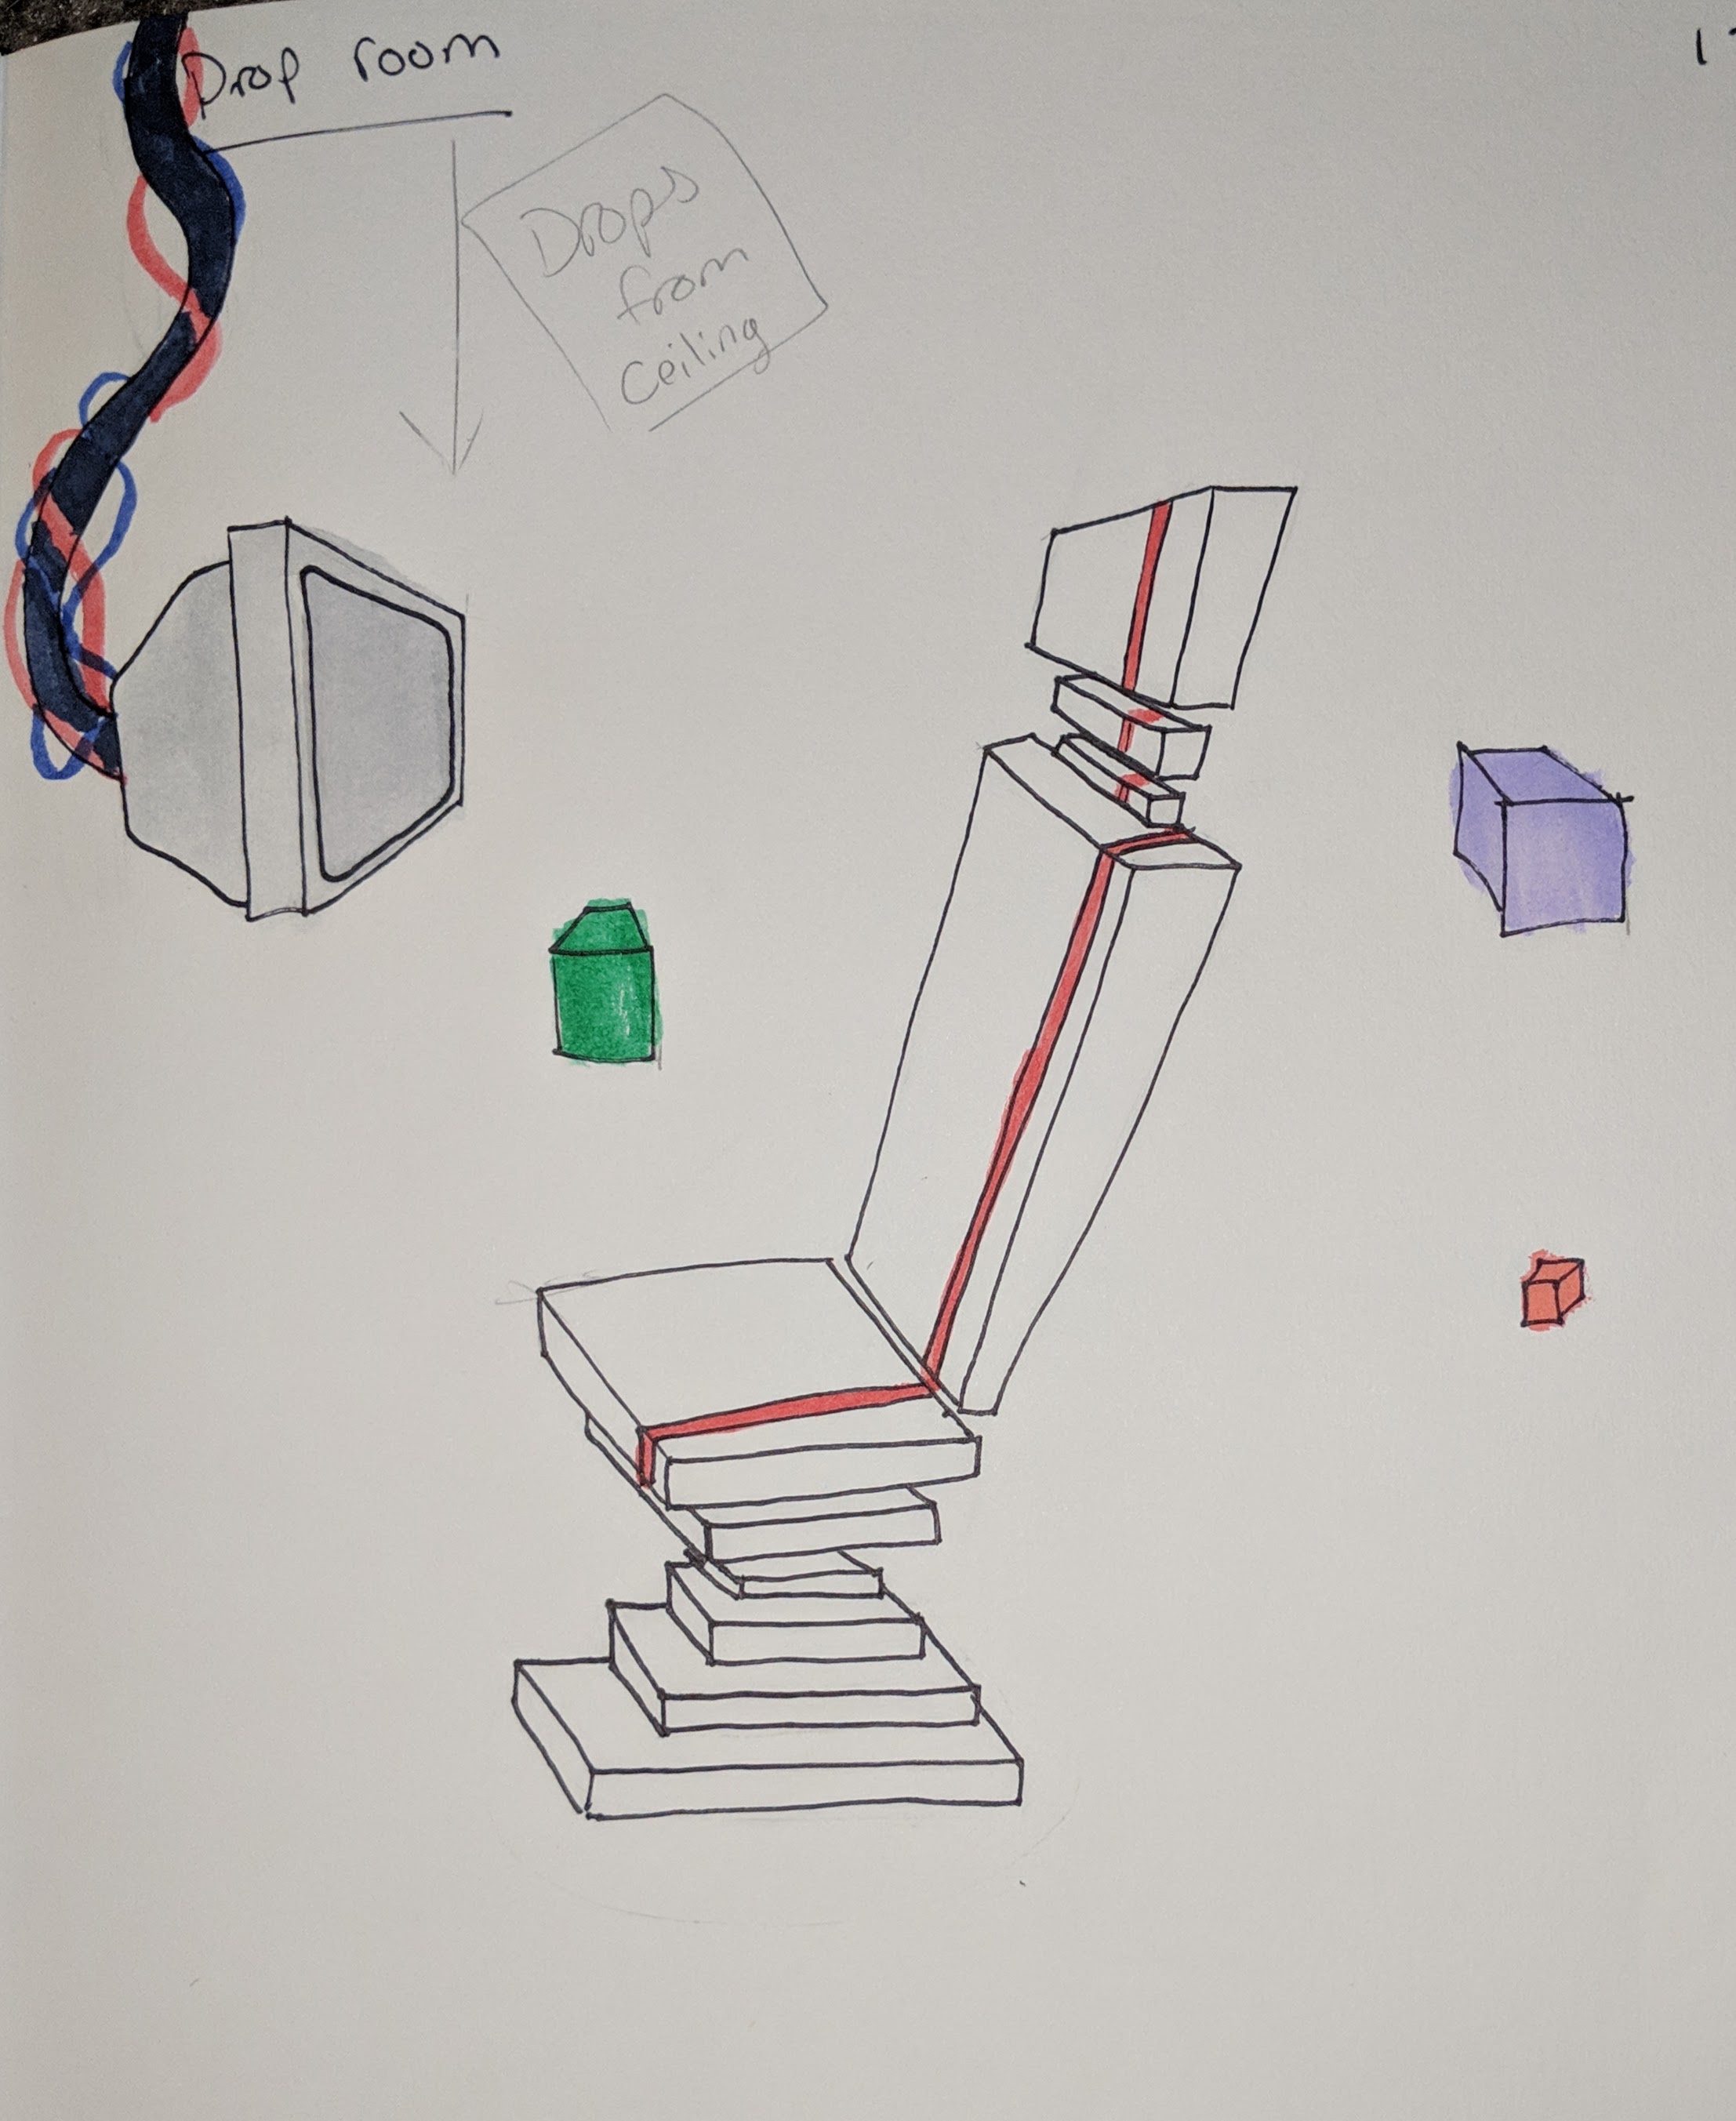 Drop room
Drops
from
ceiling